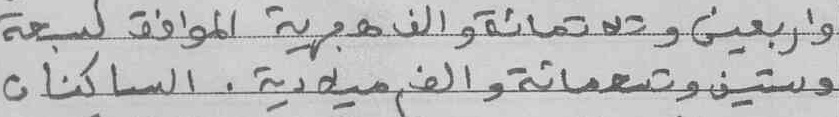 واربعين وثلاثمائة والف هجرية الموافق لسبعة
وستين وتسعمائة والف ميلادية . الساكنان